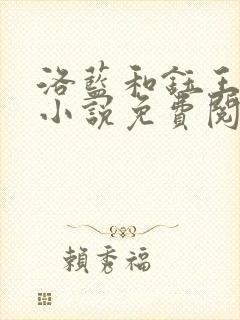 洛藍和鈺王
小說免費閱
賴秀福